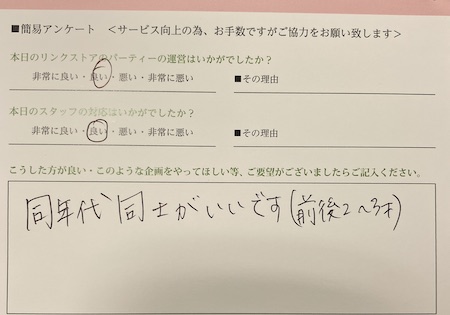 ■簡易アンケート ＜サービス向上の為、お手数ですがご協力をお願い致します＞
本日のリンクストアのパーティーの運営はいかがでしたか？
非常に良い・良い・悪い・非常に悪い ■その理由
本日のスタッフの対応はいかがでしたか？
非常に良い・良い・悪い・非常に悪い ■その理由
こうした方が良い・このような企画をやってほしい等、ご要望がございましたらご記入ください。
同年代同士がいいです(前後2〜3才)